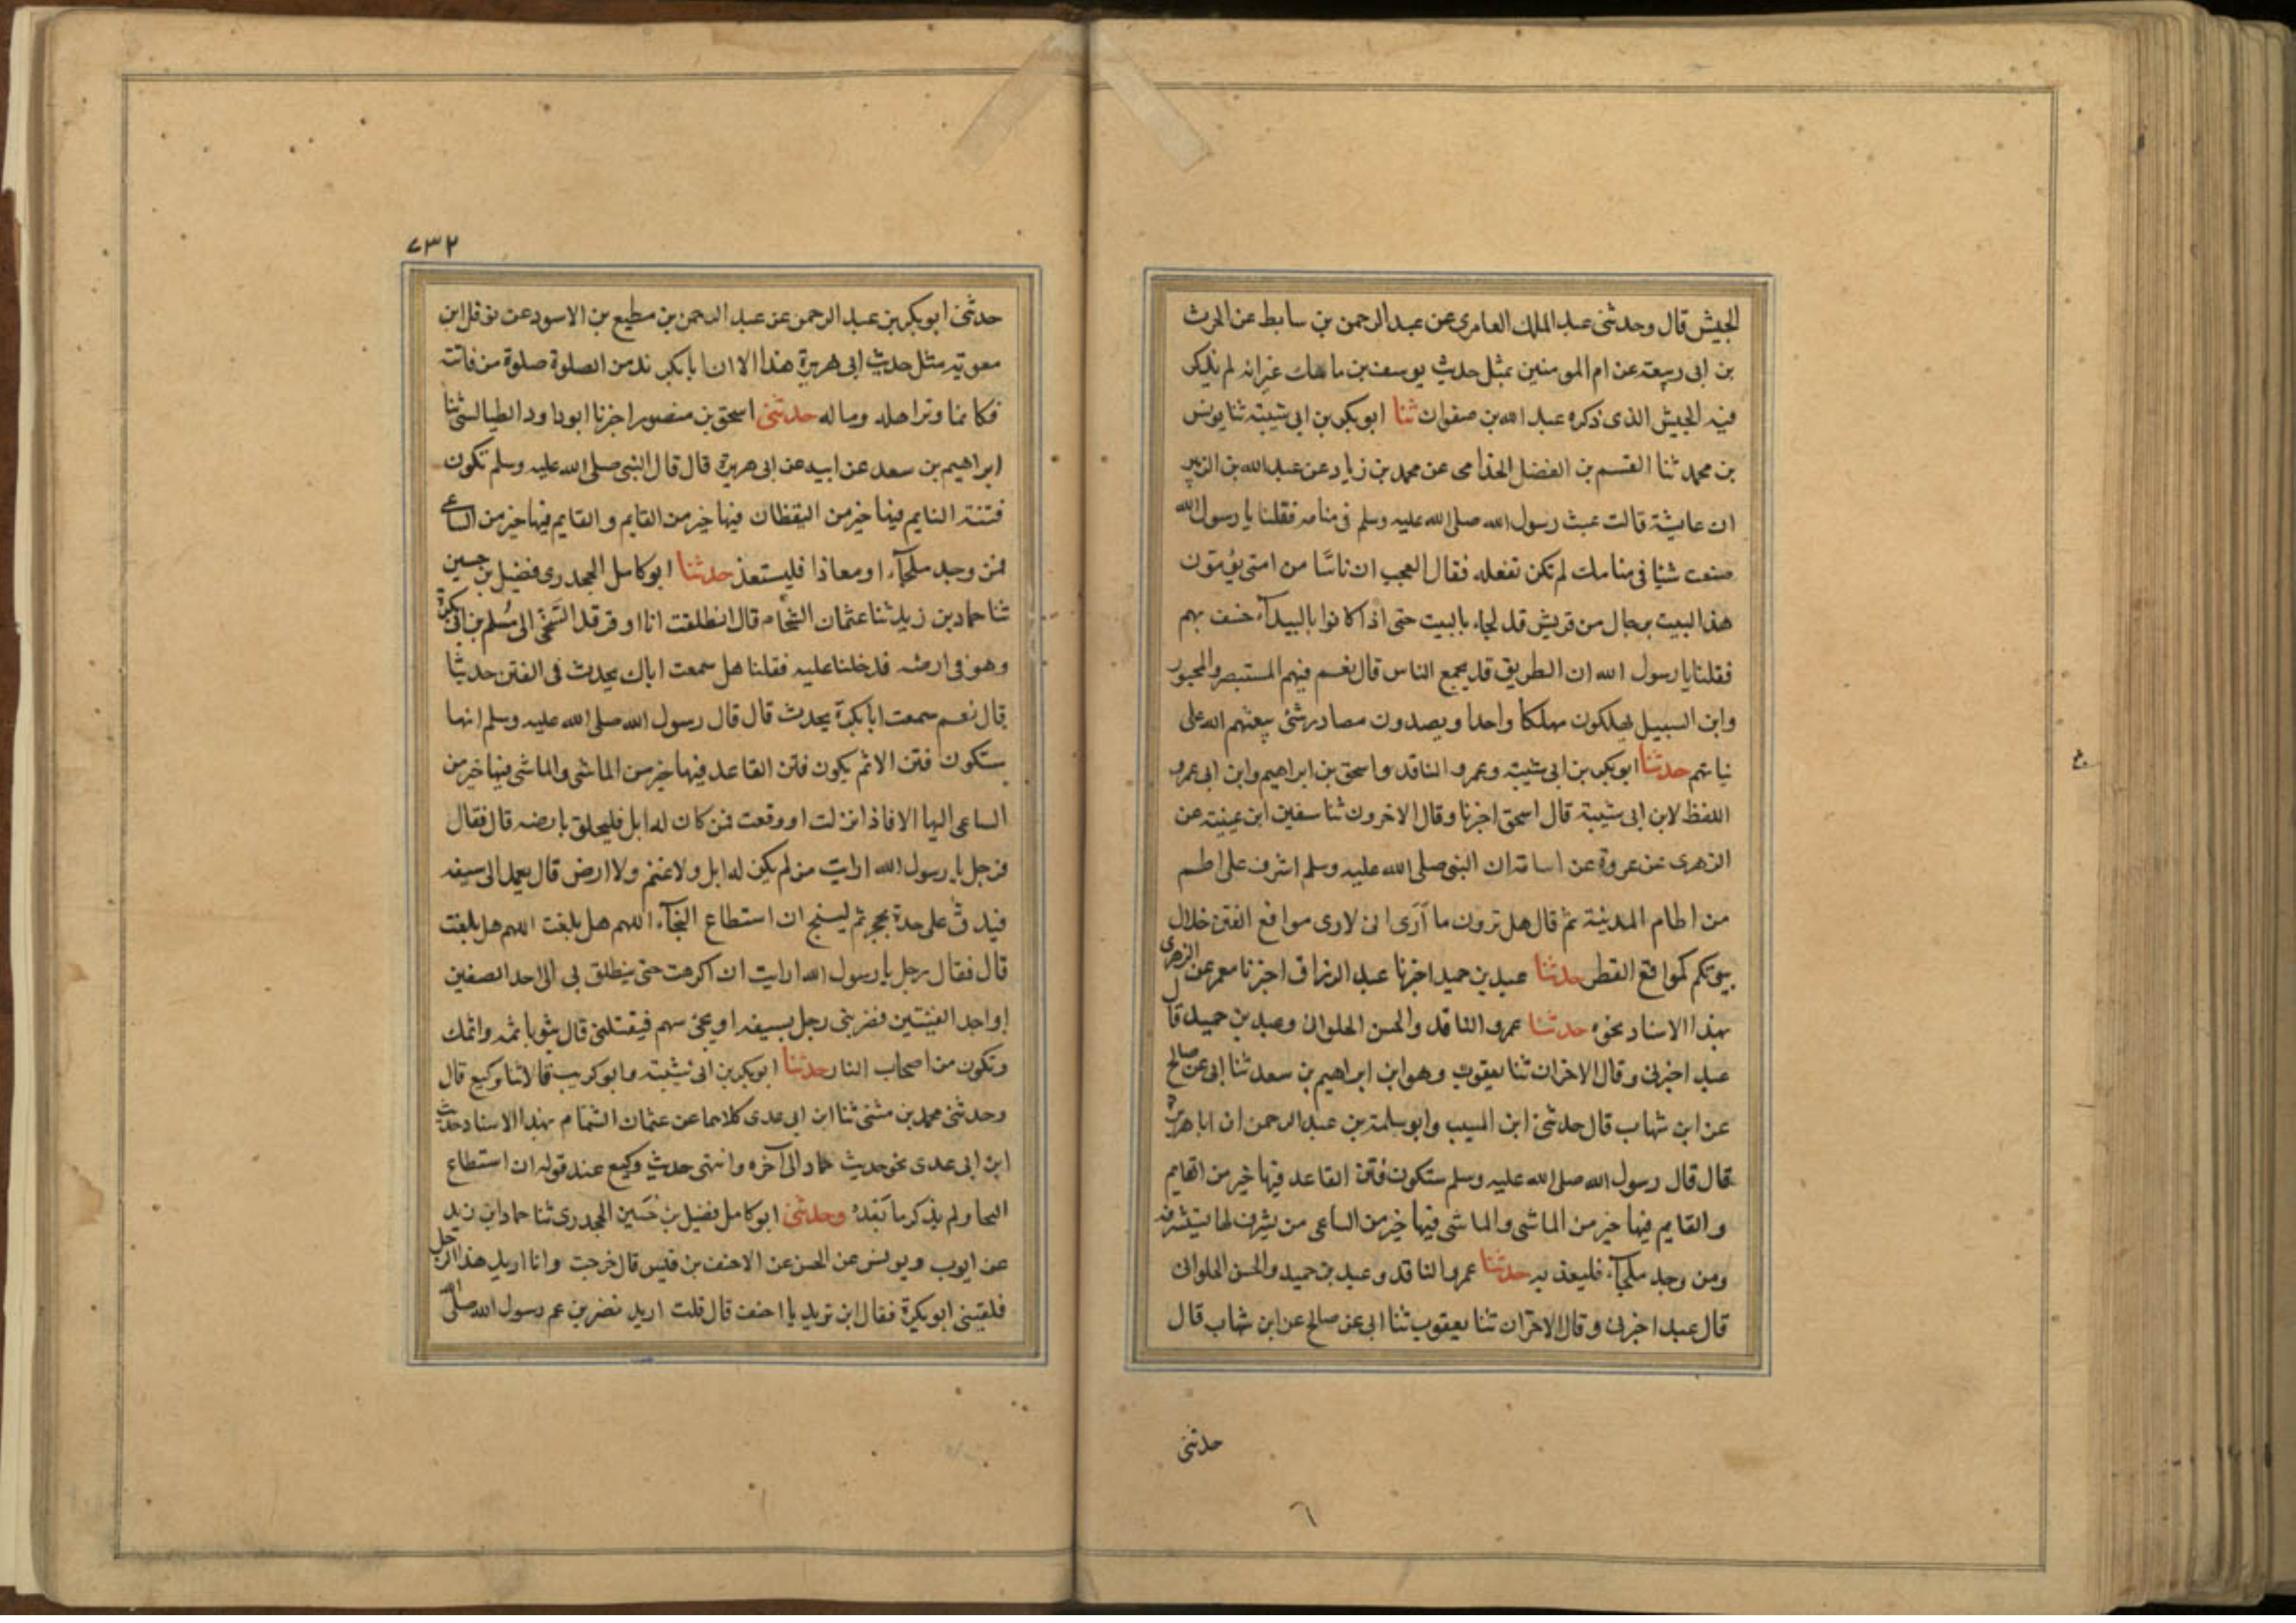 الجيش قال وحدثنى عبد الملك العامرى عن عبد الرحمن بن سابط عن الحرث
بن ابى ربيعة عن ام المومنين بمثل حديث يوسف بن ماهك غير انه لم يذكر
فيه الجيش الذى ذكره عبد الله بن صفوان ثنا ابو بكر بن ابى شيبة ثنا يونس
بن محمد ثنا القسم بن الفضل الحذامى عن محمد بن زياد عن عبد الله بن الزبير
ان عايشة قالت عبث رسول الله صلى الله عليه وسلم فى منامه فقلنا يا رسول الله
صنعت شيا فى منامك لم تكن تفعله فقال العجب ان ناسًا من امتى يؤمون
هذا البيت برجال من قريش قد لجاء بالبيت حتى اذا كانوا بالبيدآء خسف بهم
فقلنا يا رسول الله ان الطريق قد يجمع الناس قال نعم فيهم المستبصر والمجبور
وابن السبيل يهلكون مهلكا واحدا ويصدون مصادر شتى يبعثهم الله على
نياتهم حدثنا ابو بكر بن ابى شيبة وعمرو الناقد واسحق بن ابراهيم وابن ابى عمرو
اللفظ لابن ابى شيبة قال اسحق اخبرنا وقال الاخرون ثنا سفين ابن عيينة عن
الزهرى عن عروة عن اسامة ان النبى صلى الله عليه وسلم اشرف على اطم
من اطام المدينة ثم قال هل ترون ما آرَى انى لارى مواقع الفتن خلال
بيوتكم كمواقع القطر حدثنا عبد بن حميد اخبرنا عبد الرزاق اخبرنا معمر عن الزهرى
بهذا الاسناد نحوه حدثنا عمرو الناقد والحسن الحلوانى وعبد بن حميد قال
عبد اخبرنى وقال الاخران ثنا يعقوب وهو ابن ابراهيم بن سعد ثنا ابى عن صالح
عن ابن شهاب قال حدثنى ابن المسيب وابو سلمة بن عبد الرحمن ان ابا هريرة
قال قال رسول الله صلى الله عليه وسلم ستكون فتن القاعد فيها خير من القايم
والقايم فيها خير من الماشى والماشى فيها خير من الساعى من يشرف لها تستشرفه
ومن وجد ملجآء فليعذ به حدثنا عمرو الناقد وعبد بن حميد والحسن الحلوانى
قال عبد اخبرنى وقال الاخران ثنا يعقوب ثنا ابى عن صالح عن ابن شهاب قال
حدثنى
٦
٧٣٢
حدثنى ابو بكر بن عبد الرحمن عن عبد الرحمن بن مطيع بن الاسود عن نوفل ابن
معوية مثل حديث ابى هريرة هذا الا ان ابا بكر يزيد من الصلوة صلوة من فاتته
فكانما وتر اهله وماله حدثنى اسحق بن منصور اخبرنا ابو داود الطيالسى ثنا
ابراهيم بن سعد عن ابيه عن ابى هريرة قال قال النبى صلى الله عليه وسلم تكون
فتنة النايم فيها خير من اليقظان فيها خير من القايم والقايم فيها خير من الساعى
فمن وجد ملجآء او معاذا فليستعذ حدثنا ابو كامل الجحدرى فضيل بن حسين
ثنا حماد بن زيد ثنا عثمان الشحام قال انطلقت انا او فرقد السَّبَخى الى مُسلم بن ابى بكرة
وهو فى ارضه فدخلنا عليه فقلنا هل سمعت اباك يحدث فى الفتن حديثا
قال نعم سمعت ابا بكرة يحدث قال قال رسول الله صلى الله عليه وسلم انها
ستكون فتن الا ثم يكون فتن القاعد فيها خير من الماشى والماشى فيها خير من
الساعى اليها الا فاذا نزلت او وقعت فمن كان له ابل فليحلق بارضه قال فقال
فرجل يا رسول الله ارايت من لم يكن له ابل ولا غنم ولا ارض قال يعمد الى سيفه
فيدق على حدة بحجر ثم لينج ان استطاع النجآء اللهم هل بلغت اللهم هل بلغت
قال فقال رجل يا رسول الله ارايت ان اكرهت حتى ينطلق بى الى احد الصفين
او احد الفيتين فضربنى رجل بسيفه او يجئ سهم فيقتلنى قال يبوء باثمه واثمك
وتكون من اصحاب النار حدثنا ابو بكر بن ابى شيبة وابو كريب قالا ثنا وكيع قال
وحدثنى محمد بن مثنى ثنا ابن ابى عدى كلاهما عن عثمان الشحام بهذا الاسناد حديث
ابن ابى عدى نحو حديث حماد الى آخره وانتهى حديث وكيع عند قوله ان استطاع
النجا ولم يذكر ما بَعْدَهُ وحدثنى ابو كامل فضيل بن حُسَين الجحدرى ثنا حماد ابن زيد
عن ايوب ويونس عن الحسن عن الاحنف بن قيس قال خرجت وانا اريد هذا الرجل
فلقينى ابو بكرة فقال اين تريد يا احنف قال قلت اريد نصر بن عم رسول الله صلى الله